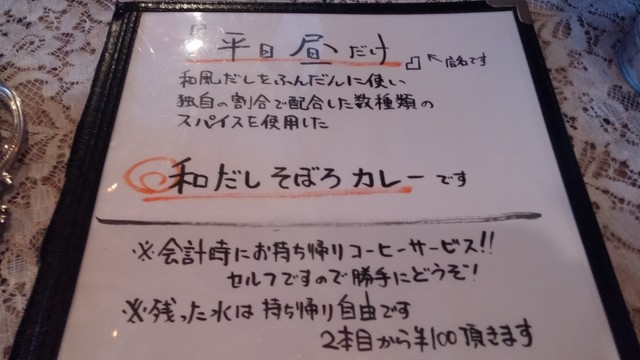 『平日昼だけ』←店名です
和風だしをふんだんに使い
独自の割合で配合した数種類の
スパイスを使用した
和だしそぼろカレーです
※会計時にお持ち帰りコーヒーサービス!!
セルフですので勝手にどうぞ!
※残った水は持ち帰り自由です
2本目から¥100頂きます